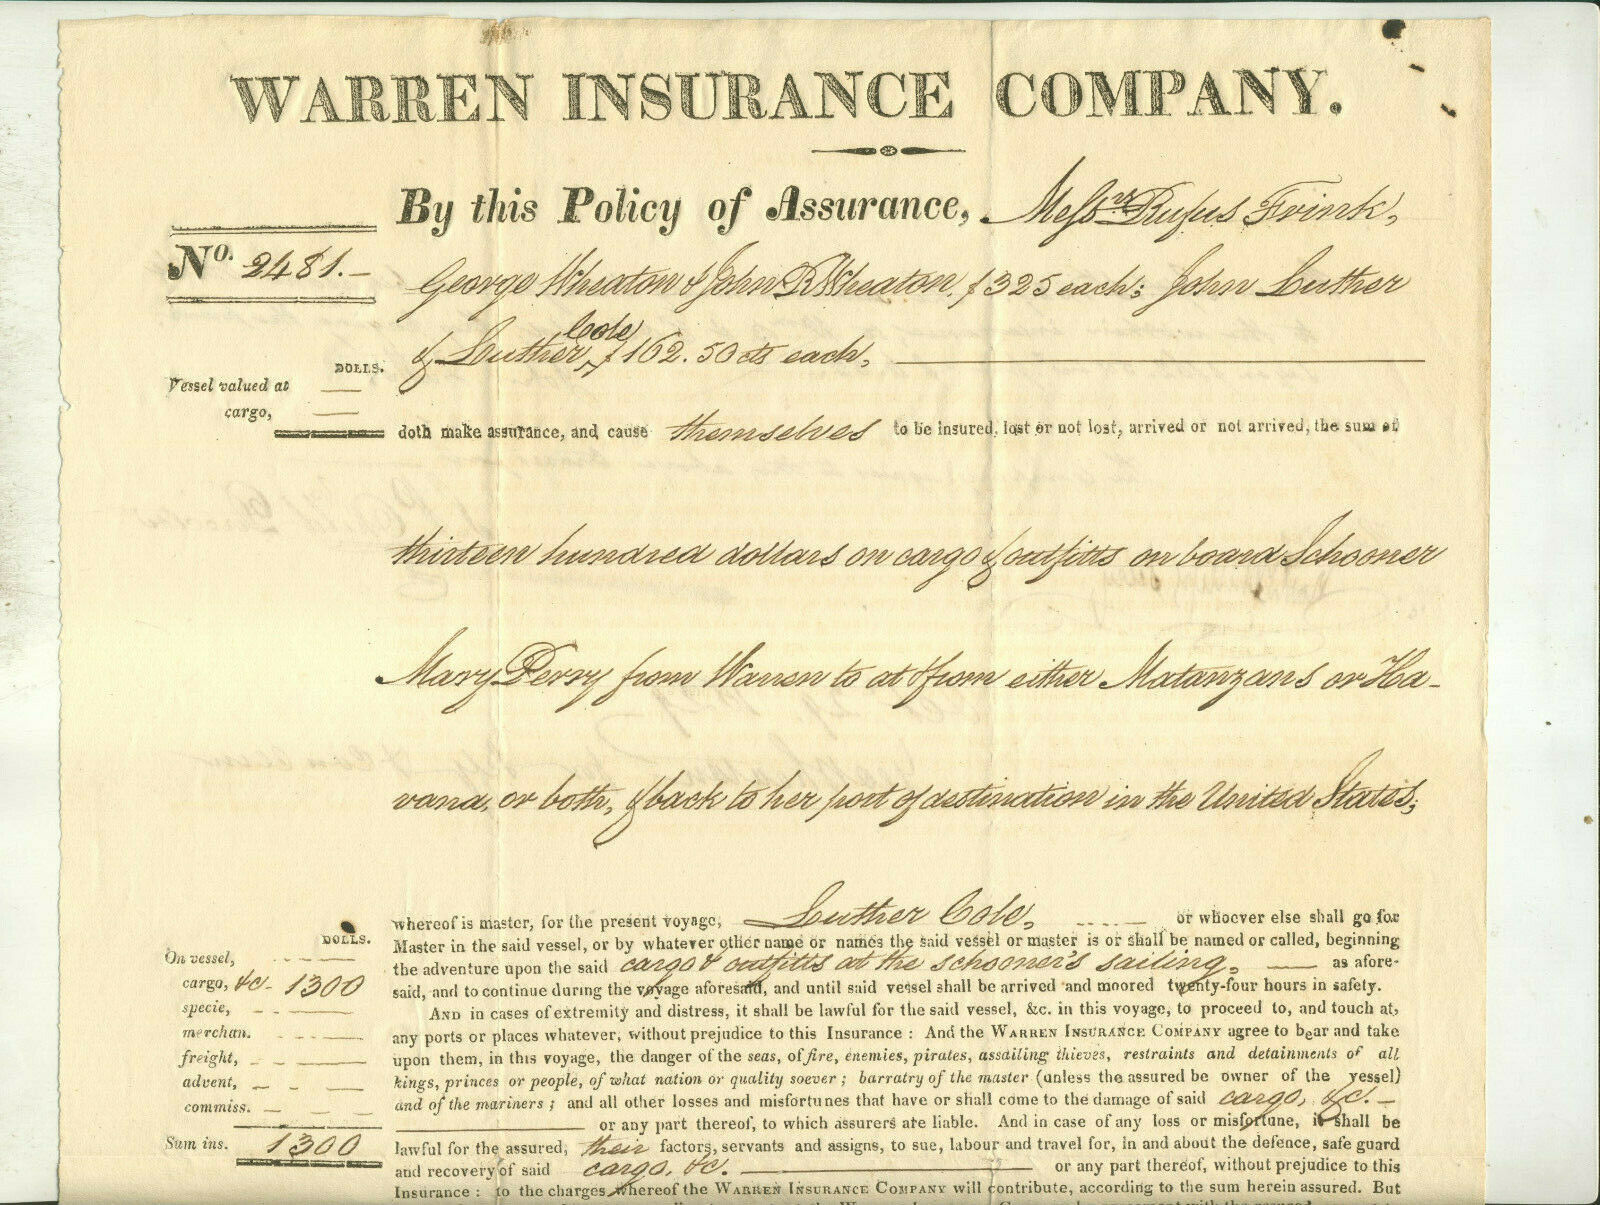 WARREN INSURANCE COMPANY.
By this Policy of Assurance, Messrs Rufus Frink,
No. 2481.-
George Wheaton & John R Wheaton, $325 each; John Luther
& Luther Cole, $162.50 cts each,
DOLLS.
Vessel valued at
cargo,
doth make assurance, and cause themselves to be insured, lost or not lost, arrived or not arrived, the sum of
thirteen hundred dollars on cargo & outfitts on board Schooner
Mary Perry from Warren to at & from either Matanzans or Ha-
vana, or both, & back to her port of destination in the United States;
whereof is master, for the present voyage, Luther Cole, or whoever else shall go for
DOLLS.
Master in the said vessel, or by whatever other name or names the said vessel or master is or shall be named or called, beginning
On vessel,
the adventure upon the said cargo & outfitts at the schooner's sailing, as afore-
cargo, &c- 1300
said, and to continue during the voyage aforesaid, and until said vessel shall be arrived and moored twenty-four hours in safety.
specie,
And in cases of extremity and distress, it shall be lawful for the said vessel, &c. in this voyage, to proceed to, and touch at,
merchan.
any ports or places whatever, without prejudice to this Insurance : And the Warren Insurance Company agree to bear and take
freight,
upon them, in this voyage, the danger of the seas, of fire, enemies, pirates, assailing thieves, restraints and detainments of all
advent,
kings, princes or people, of what nation or quality soever ; barratry of the master (unless the assured be owner of the vessel)
commiss.
and of the mariners ; and all other losses and misfortunes that have or shall come to the damage of said cargo, &c.-
or any part thereof, to which assurers are liable. And in case of any loss or misfortune, it shall be
Sum ins. 1300
lawful for the assured, their factors, servants and assigns, to sue, labour and travel for, in and about the defence, safe guard
and recovery of said cargo, &c. or any part thereof, without prejudice to this
Insurance : to the charges whereof the Warren Insurance Company will contribute, according to the sum herein assured. But